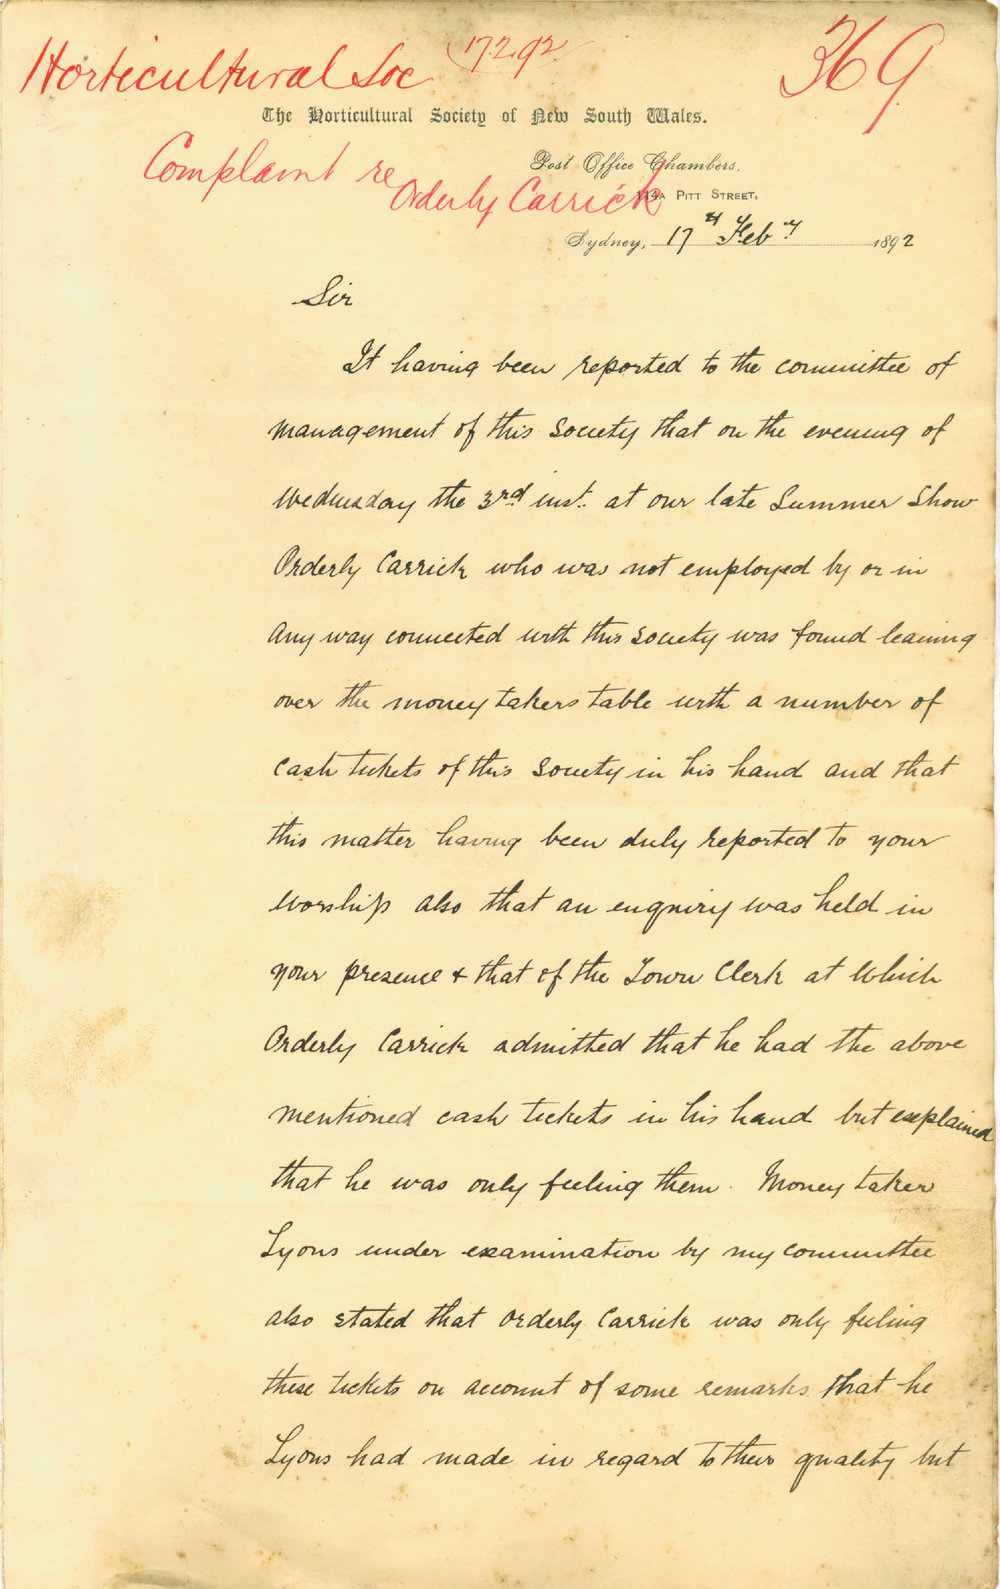 Horticultural Soc 17.2.92. 369
The Horticultural Society of New South Wales.
Complaint re
Orderly Carrick
Post Office Chambers,
114A Pitt Street,
Sydney, 17th Feby 1892
Sir
It having been reported to the committee of
management of this Society that on the evening of
Wednesday the 3rd inst. at our late Summer Show
Orderly Carrick who was not employed by or in
any way connected with this Society was found leaning
over the money takers table with a number of
cash tickets of this Society in his hand and that
this matter having been duly reported to your
Worship also that an enquiry was held in
your presence + that of the Town Clerk at which
Orderly Carrick admitted that he had the above
mentioned cash tickets in his hand but explained
that he was only feeling them. Money taker
Lyons under examination by my committee
also stated that Orderly Carrick was only feeling
these tickets on account of some remarks that he
Lyons had made in regard to their quality but